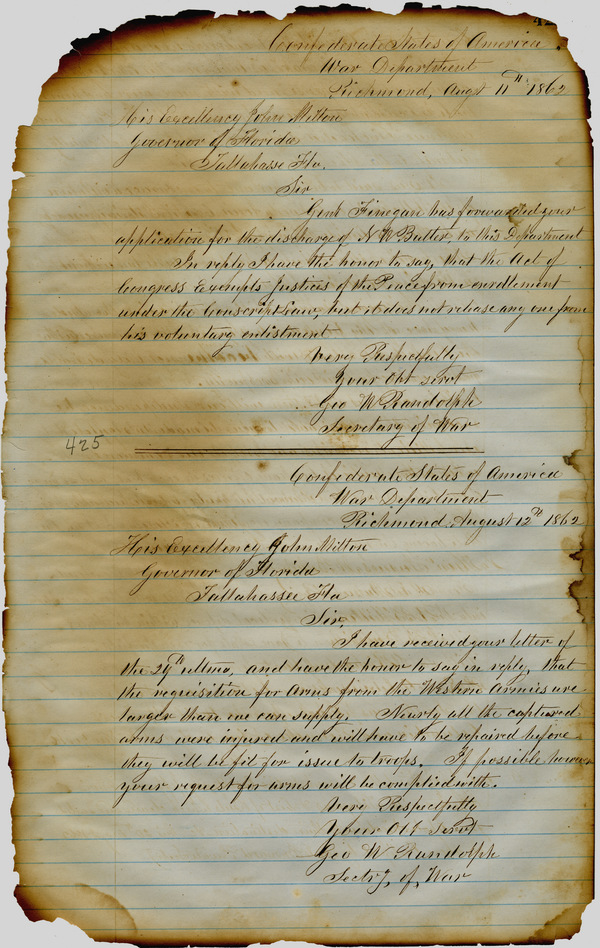 Confederate States of America
War Department
Richmond, Augt 11th 1862
His Excellency John Milton
Governor of Florida
Tallahasse Fla.
Sir
Genl Finegan has forwarded your
application for the discharge of N W Butler, to this Department
In reply I have the honor to say, that the Act of
Congress Exempts Justices of the Peace from enrollment
under the Conscript Law, but it does not release any one from
his voluntary enlistment
Very Respectfully
Your Obt servt
Geo W Randolph
Secretary of War
425
Confederate States of America
War Department
Richmond August 12th 1862
His Excellency John Milton
Governor of Florida
Tallahassee Fla
Sir,
I have received your letter of
the 29th ultmo, and have the honor to say in reply, that
the requisition for Arms from the Western Armies are
larger than we can supply. Nearly all the captured
arms were injured and will have to be repaired before
they will be fit for issue to troops. If possible however
your request for arms will be complied with.
Very Respectfully
Your Obt Servt
Geo W Randolph
Secty, of, War